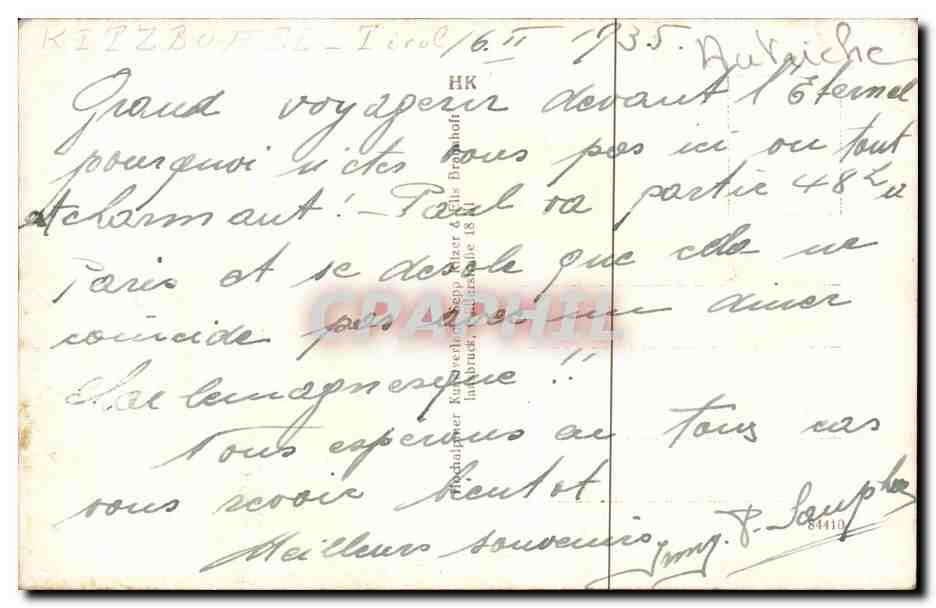 KITZBUHEL - Tirol 16. II 1935.
Autriche
HK
Grand voyageur devant l'Eternel
pourquoi n'etes vous pas ici ou tout
est charmant! - Paul va partir 48h a
Paris et se desole que cela ne
coincide pas avec un diner
charlemagnesque !!
Nous esperons en tous cas
vous revoir bientot.
Meilleurs souvenirs
Hochalpiner Kunstverlag Sepp Ritzer & Elis Braunhofer
Innsbruck,
84410
CPAPHIL